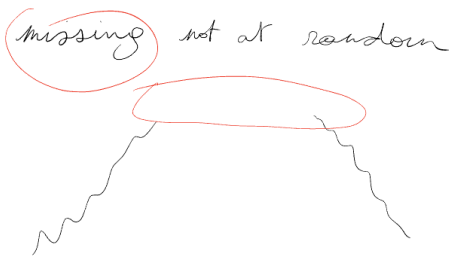 missing not at random